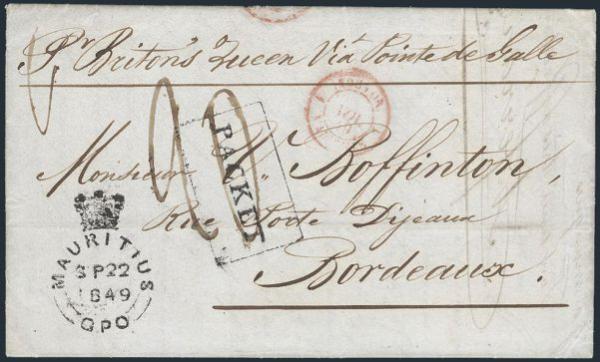 Pr Briton's Queen Viâ Pointe de Galle
20
PACKET
Monsieur Boffinton,
Rue Porte Dijeaux
Bordeaux.
MAURITIUS
SP22
1849
GPO